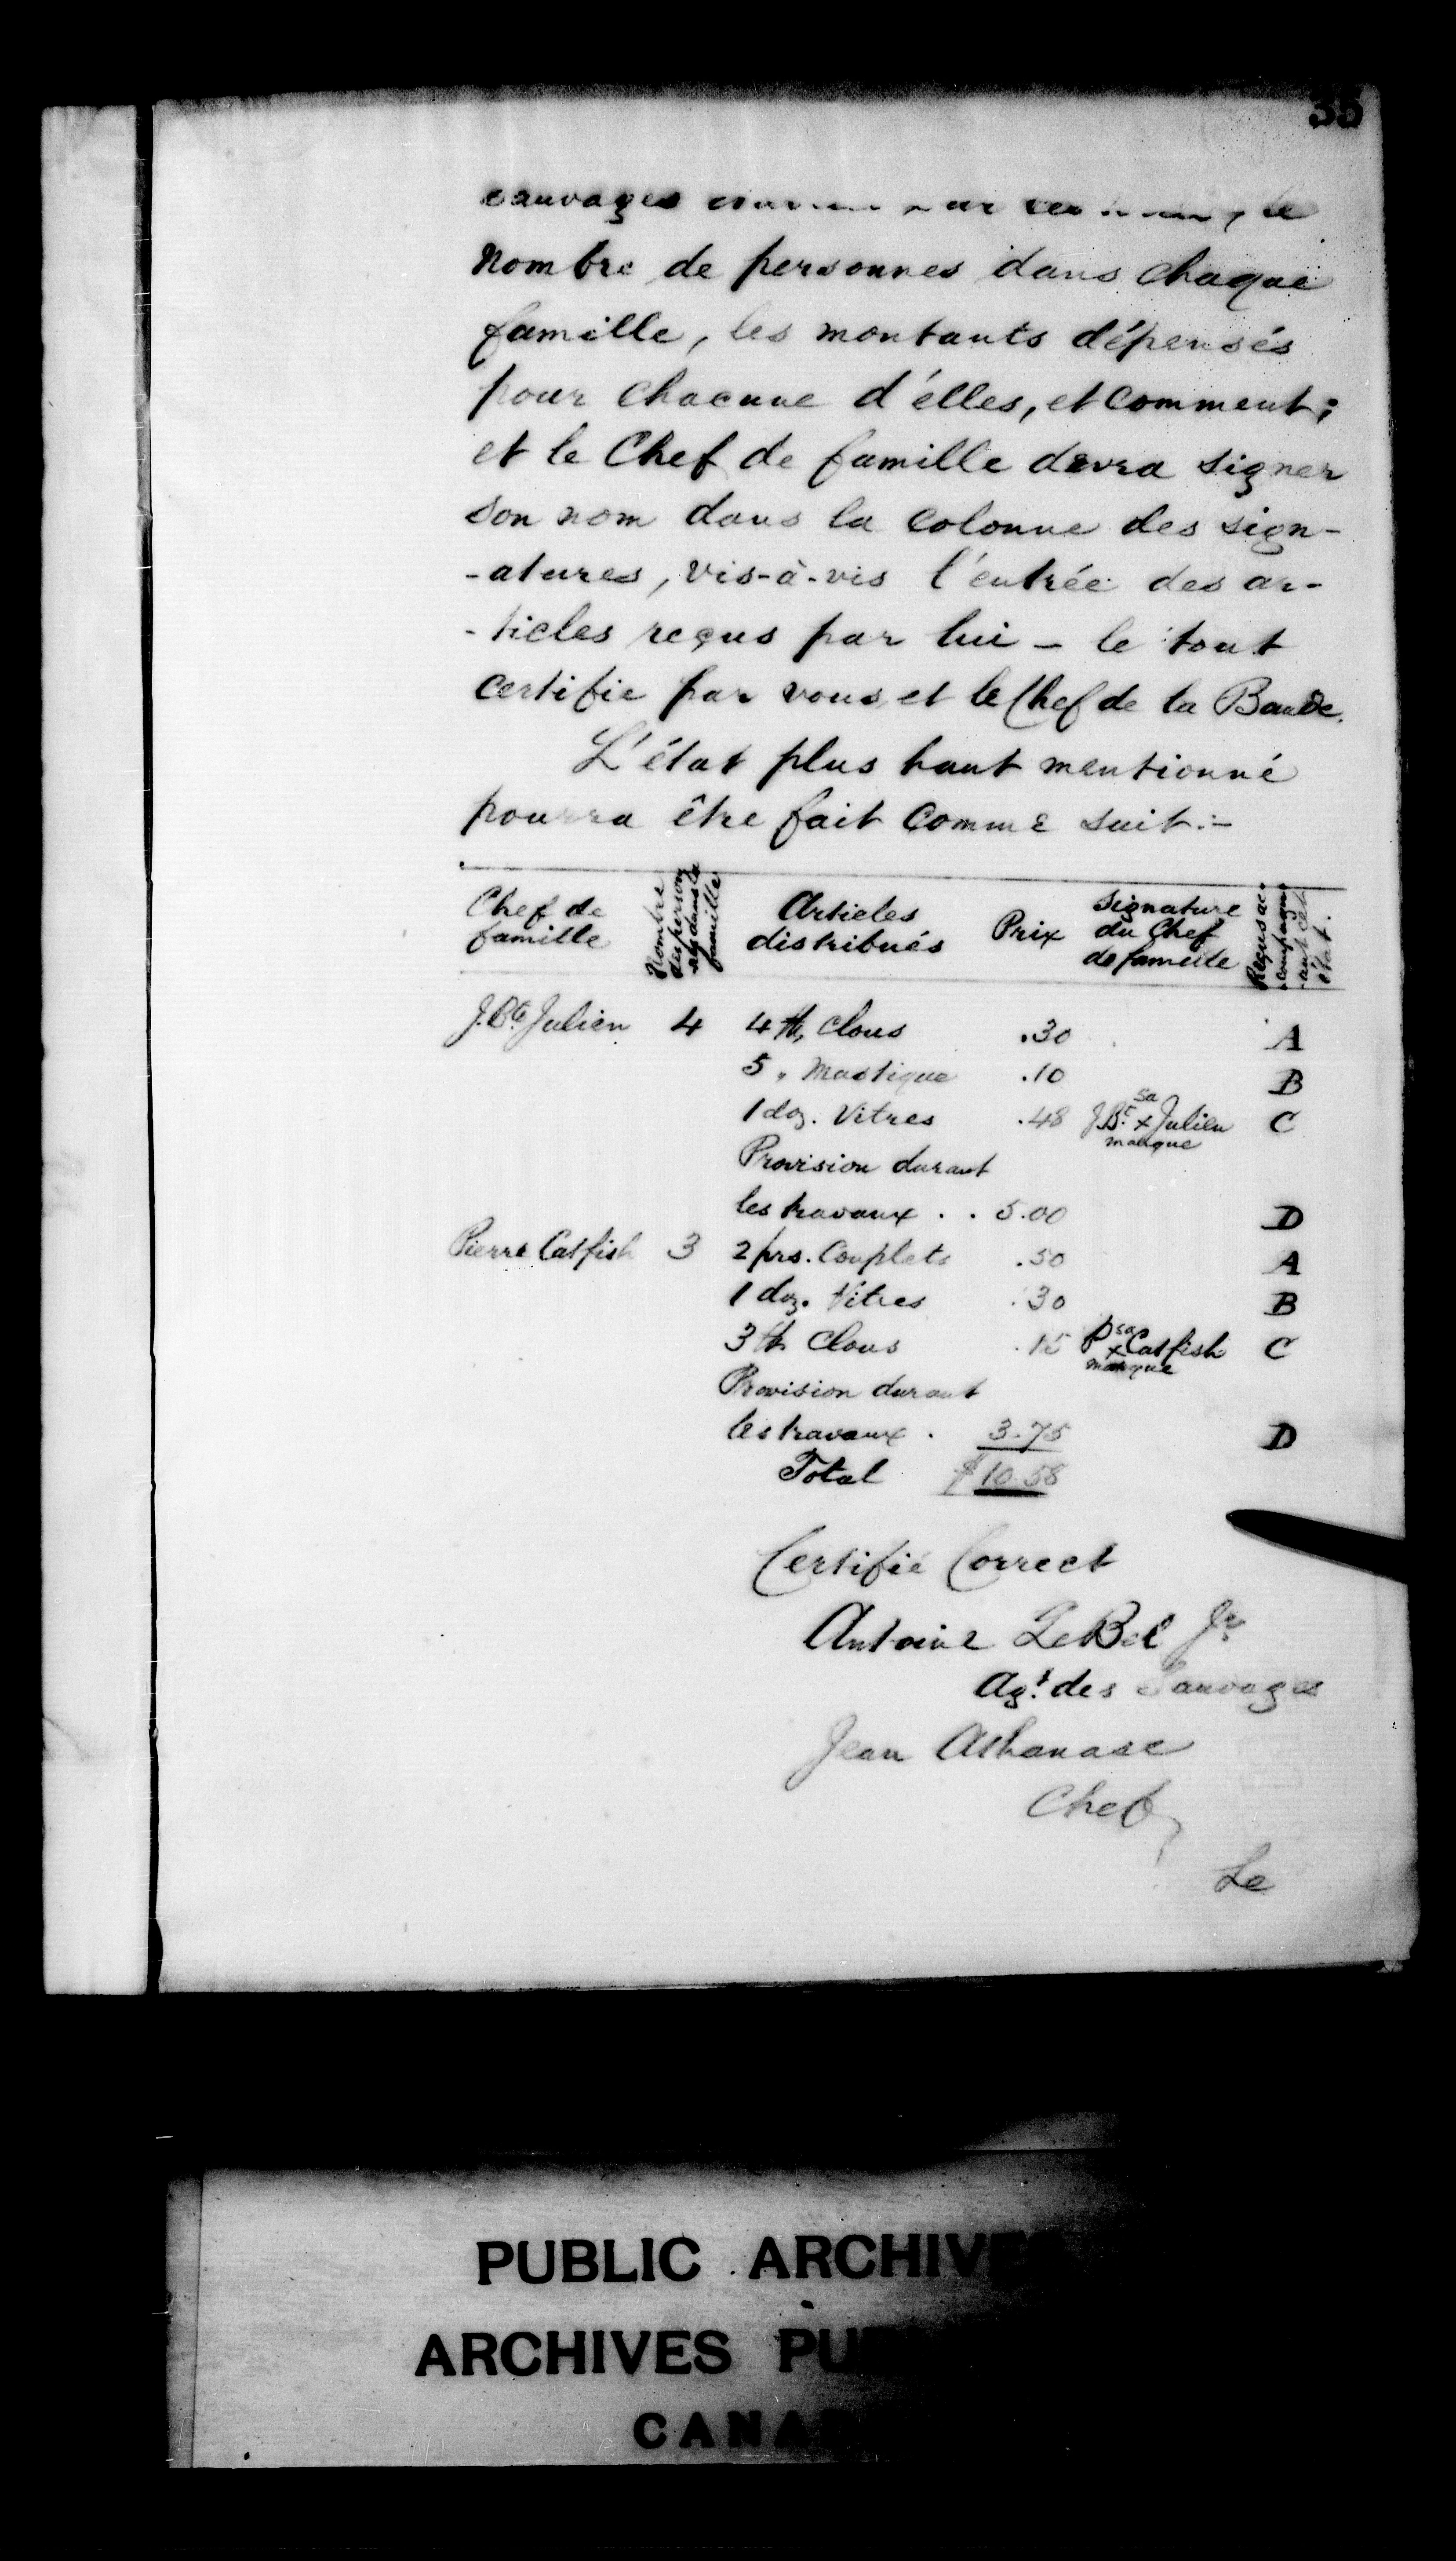 35
sauvages le
nombre de personnes dans chaque
famille, les montants dépensés
pour chacune d'élles, et comment;
et le Chef de famille devra signer
son nom dans la colonne des sign-
-atures, vis-à-vis l'entrée des ar-
-ticles reçus par lui - le tout
certifie par vous et le Chef de la Bande.
L'état plus haut mentionné
pourra être fait comme suit:-
Chef de famille | Nombre des personnes dans la famille | Articles distribués | Prix | Signature du Chef de famille | Reçus accompagnant cet état.
J. Bte. Julien 4 4 ℔, Clous .30 A
5 " Mastique .10 B
1 doz. Vitres .48 J.Bt. sa x marque Julien C
Provision durant
les travaux . . 5.00 D
Pierre Catfish 3 2 prs. Couplets .50 A
1 doz. Vitres .30 B
3 ℔ Clous .15 P sa x marque Catfish C
Provision durant
les travaux . 3.75 D
Total $10.58
Certifié Correct
Antoine LeBel Jr.
Agt. des Sauvages
Jean Athanase
Chef
Le
PUBLIC ARCHIVES
ARCHIVES PU
CANA